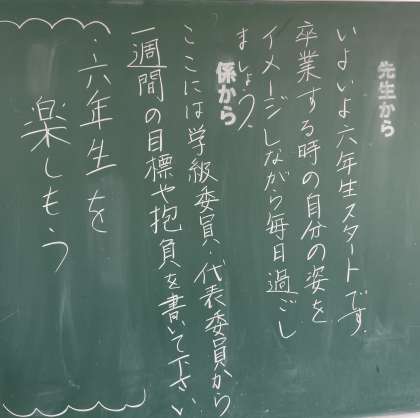 先生から
いよいよ六年生スタートです。
卒業する時の自分の姿を
イメージしながら毎日過ごし
ましょう。
係から
ここには学級委員・代表委員から
一週間の目標や抱負を書いて下さい。
・六年生を
楽しもう